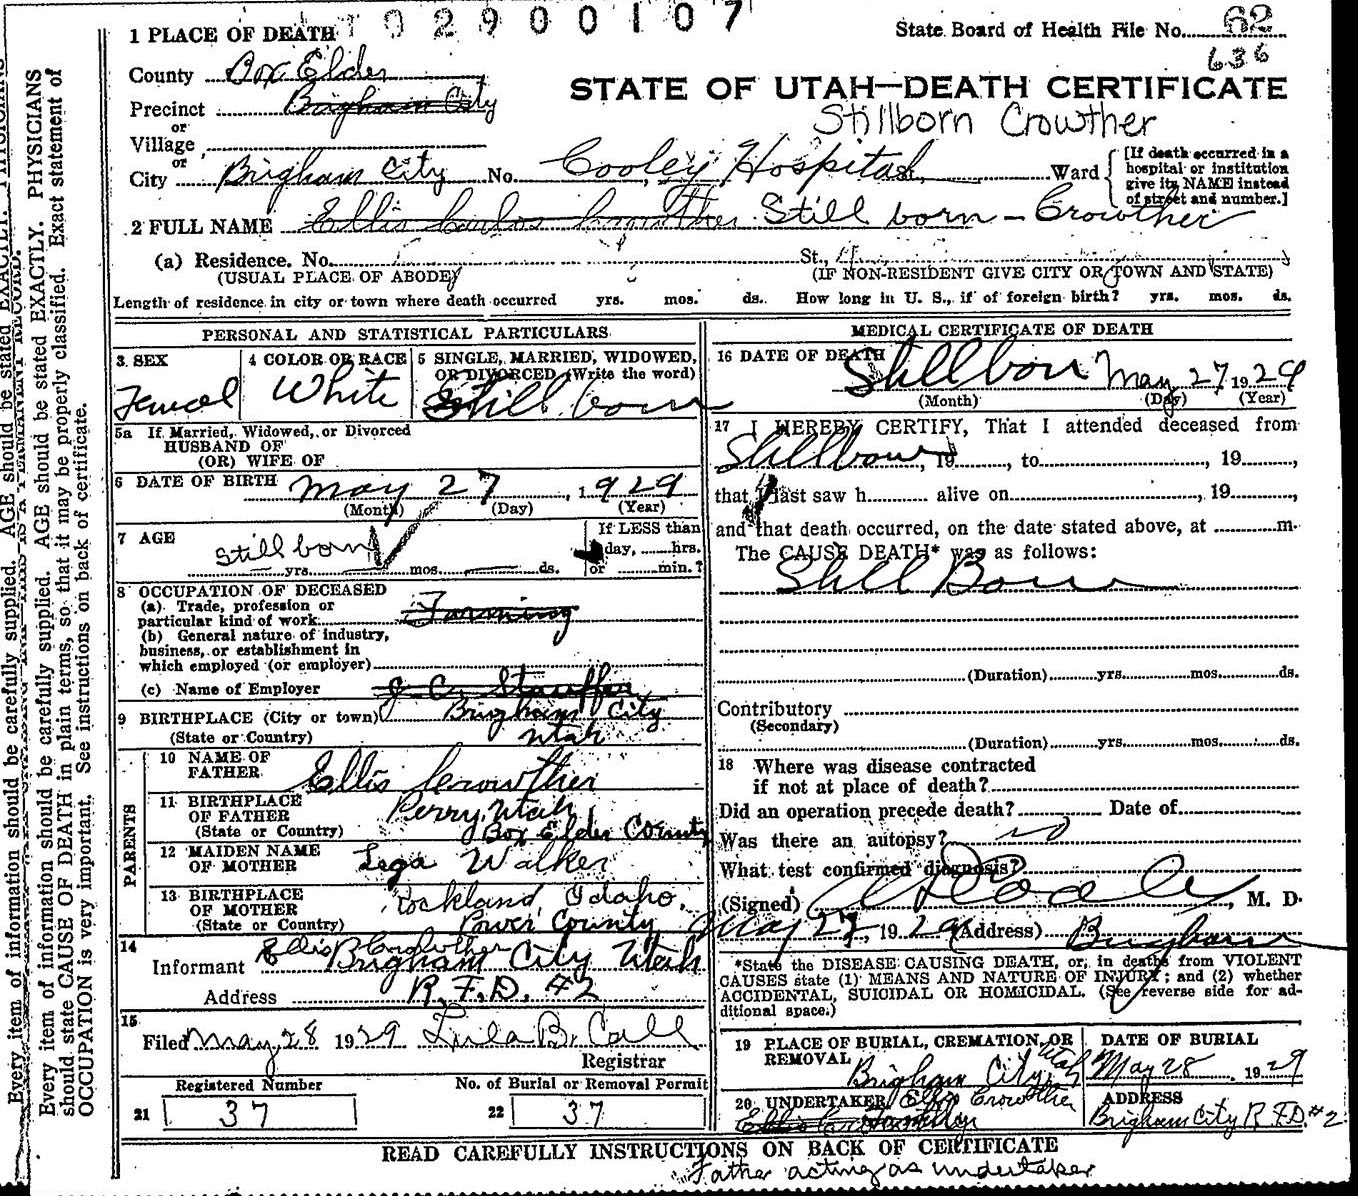 1 PLACE OF DEATH 1 0 2 9 0 0 1 0 7
State Board of Health File No. 62
636
County Box Elder
STATE OF UTAH—DEATH CERTIFICATE
Precinct Brigham City
or
Stillborn Crowther
Village
or
City Brigham City No. Cooley Hospital Ward
[If death occurred in a
hospital or institution
give its NAME instead
of street and number.]
2 FULL NAME Ellis Crowther Still born - Crowther
(a) Residence. No. St.,
(USUAL PLACE OF ABODE) (IF NON-RESIDENT GIVE CITY OR TOWN AND STATE)
Length of residence in city or town where death occurred yrs. mos. ds. How long in U. S., if of foreign birth? yrs. mos. ds.
PERSONAL AND STATISTICAL PARTICULARS
3 SEX
4 COLOR OR RACE
White
5 SINGLE, MARRIED, WIDOWED,
OR DIVORCED (Write the word)
Still born
5a If Married, Widowed, or Divorced
HUSBAND OF
(OR) WIFE OF
6 DATE OF BIRTH May 27, 1929
(Month) (Day) (Year)
7 AGE
Still born
yrs. mos. ds.
If LESS than
day, hrs.
or min.?
8 OCCUPATION OF DECEASED
(a) Trade, profession or
particular kind of work Farming
(b) General nature of industry,
business, or establishment in
which employed (or employer)
(c) Name of Employer J. C. Stauffer
9 BIRTHPLACE (City or town) Brigham City
(State or Country) Utah
PARENTS
10 NAME OF
FATHER Ellis Crowther
11 BIRTHPLACE
OF FATHER Perry, Utah
(State or Country) Box Elder County
12 MAIDEN NAME
OF MOTHER Lega Walker
13 BIRTHPLACE
OF MOTHER Rockland, Idaho,
(State or Country) Power County
14
Ellis B Crowther
Informant Brigham City Utah
Address R. F. D. #2
15
Filed May 28 1929 Lula B. Call
Registrar
Registered Number
21 37
No. of Burial or Removal Permit
22 37
MEDICAL CERTIFICATE OF DEATH
16 DATE OF DEATH
Stillborn May 27 1929
(Month) (Day) (Year)
17 I HEREBY CERTIFY, That I attended deceased from
Stillborn, 19, to, 19,
that I last saw h alive on, 19,
and that death occurred, on the date stated above, at m.
The CAUSE DEATH* was as follows:
Still Born
(Duration) yrs. mos. ds.
Contributory
(Secondary)
(Duration) yrs. mos. ds.
18 Where was disease contracted
if not at place of death?
Did an operation precede death? Date of
Was there an autopsy? no
What test confirmed diagnosis?
(Signed), M. D.
May 27, 1929 (Address) Brigham
*State the DISEASE CAUSING DEATH, or, in deaths from VIOLENT
CAUSES state (1) MEANS AND NATURE OF INJURY; and (2) whether
ACCIDENTAL, SUICIDAL OR HOMICIDAL. (See reverse side for ad-
ditional space.)
19 PLACE OF BURIAL, CREMATION, OR
REMOVAL
Brigham City, Utah
DATE OF BURIAL
May 28, 1929
20 UNDERTAKER Ellis Crowther
ADDRESS
Brigham City R.F.D. #2
READ CAREFULLY INSTRUCTIONS ON BACK OF CERTIFICATE
Father acting as undertaker
Every item of information should be carefully supplied. AGE should be stated EXACTLY. PHYSICIANS
Every item of information should be carefully supplied. AGE should be stated EXACTLY. PHYSICIANS
should state CAUSE OF DEATH in plain terms, so that it may be properly classified. Exact statement of
OCCUPATION is very important. See instructions on back of certificate.